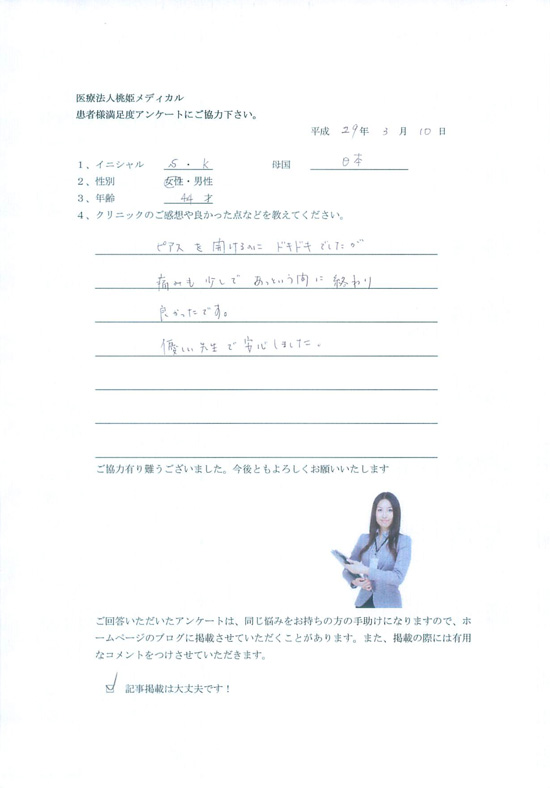 医療法人桃姫メディカル
患者様満足度アンケートにご協力下さい。
平成 29年 3 月 10 日
1、イニシャル S・K 母国 日本
2、性別 女性・男性
3、年齢 44 才
4、クリニックのご感想や良かった点などを教えてください。
ピアスを開けるのに ドキドキでしたが
痛みも少しで あっという間に 終わり
良かったです。
優しい先生で安心しました。
ご協力有り難うございました。今後ともよろしくお願いいたします
ご回答いただいたアンケートは、同じ悩みをお持ちの方の手助けになりますので、ホ
ームページのブログに掲載させていただくことがあります。また、掲載の際には有用
なコメントをつけさせていただきます。
記事掲載は大丈夫です！